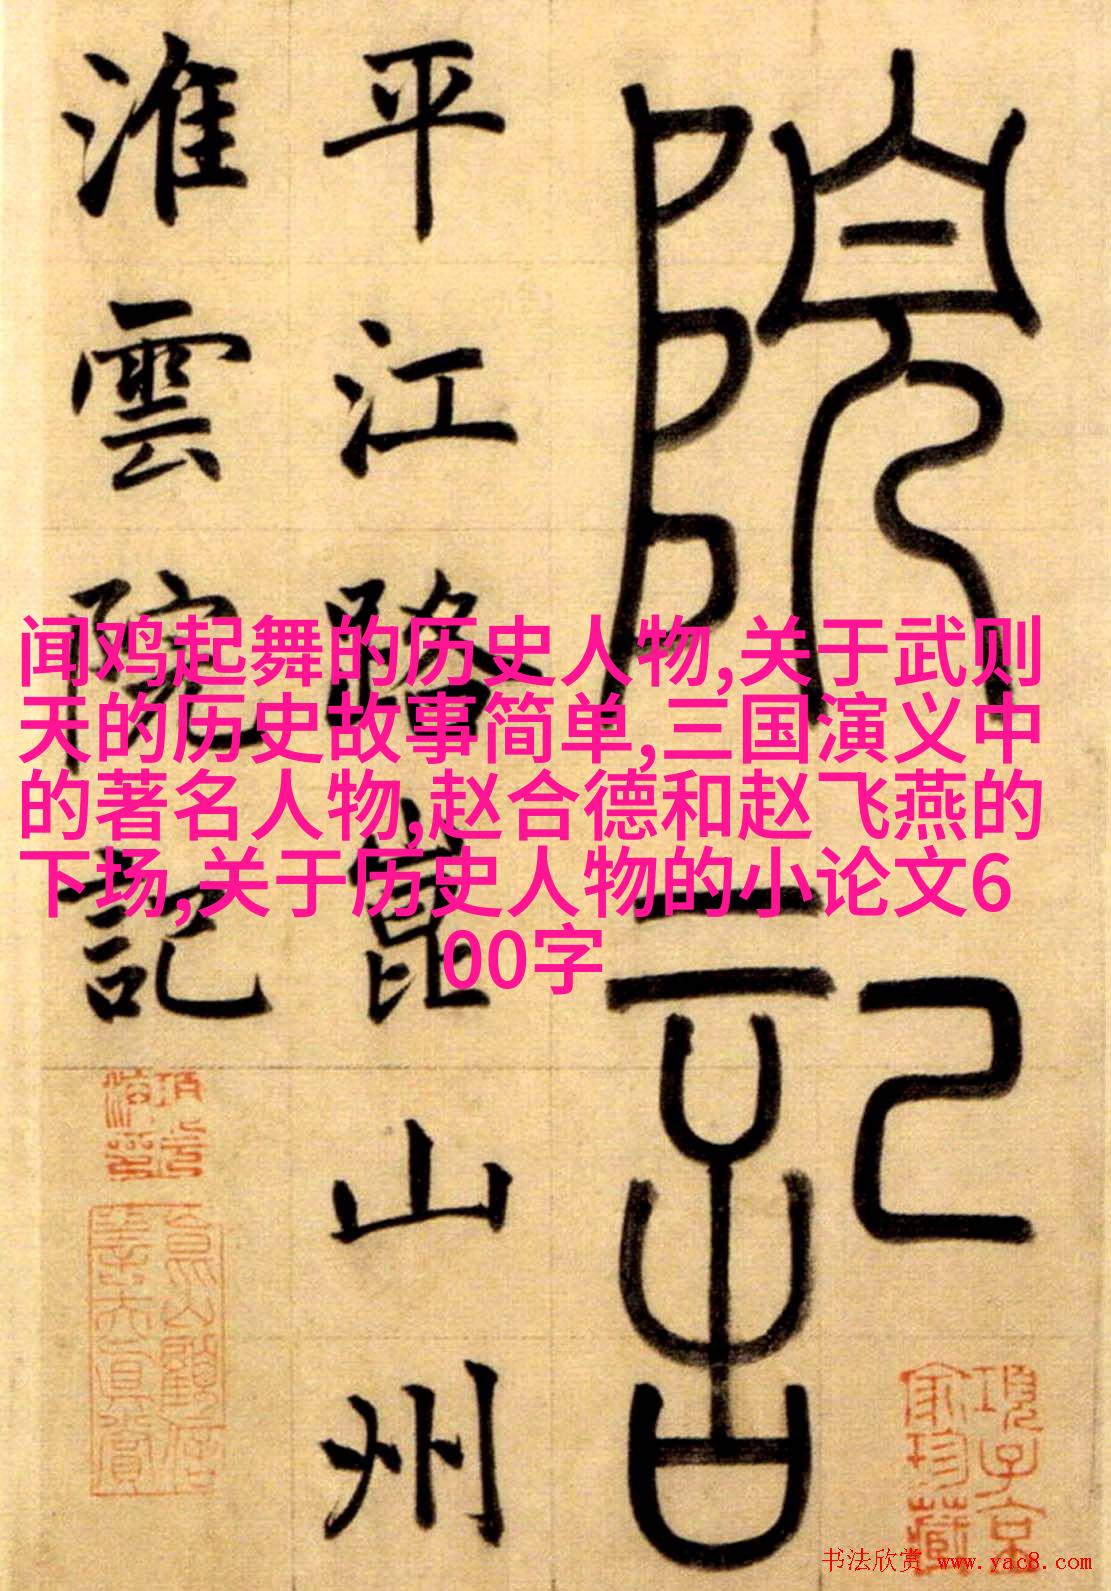 院記
平江路崑山州
淮雲院記
闻鸡起舞的历史人物,关于武则
天的历史故事简单,三国演义中
的著名人物,赵合德和赵飞燕的
下场,关于历史人物的小论文6
00字
项子京
家珍藏
书法欣赏 www.yac8.com